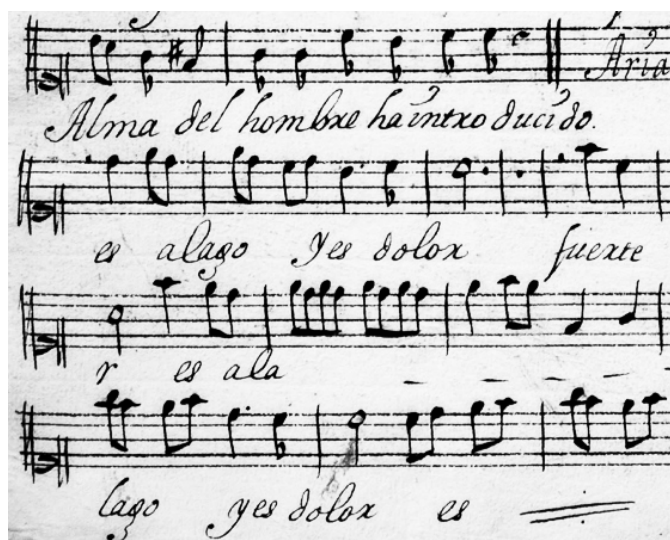 Aria
Alma del hombre ha introducido.
es alago yes dolor fuerte
r es ala
lago yes dolor es